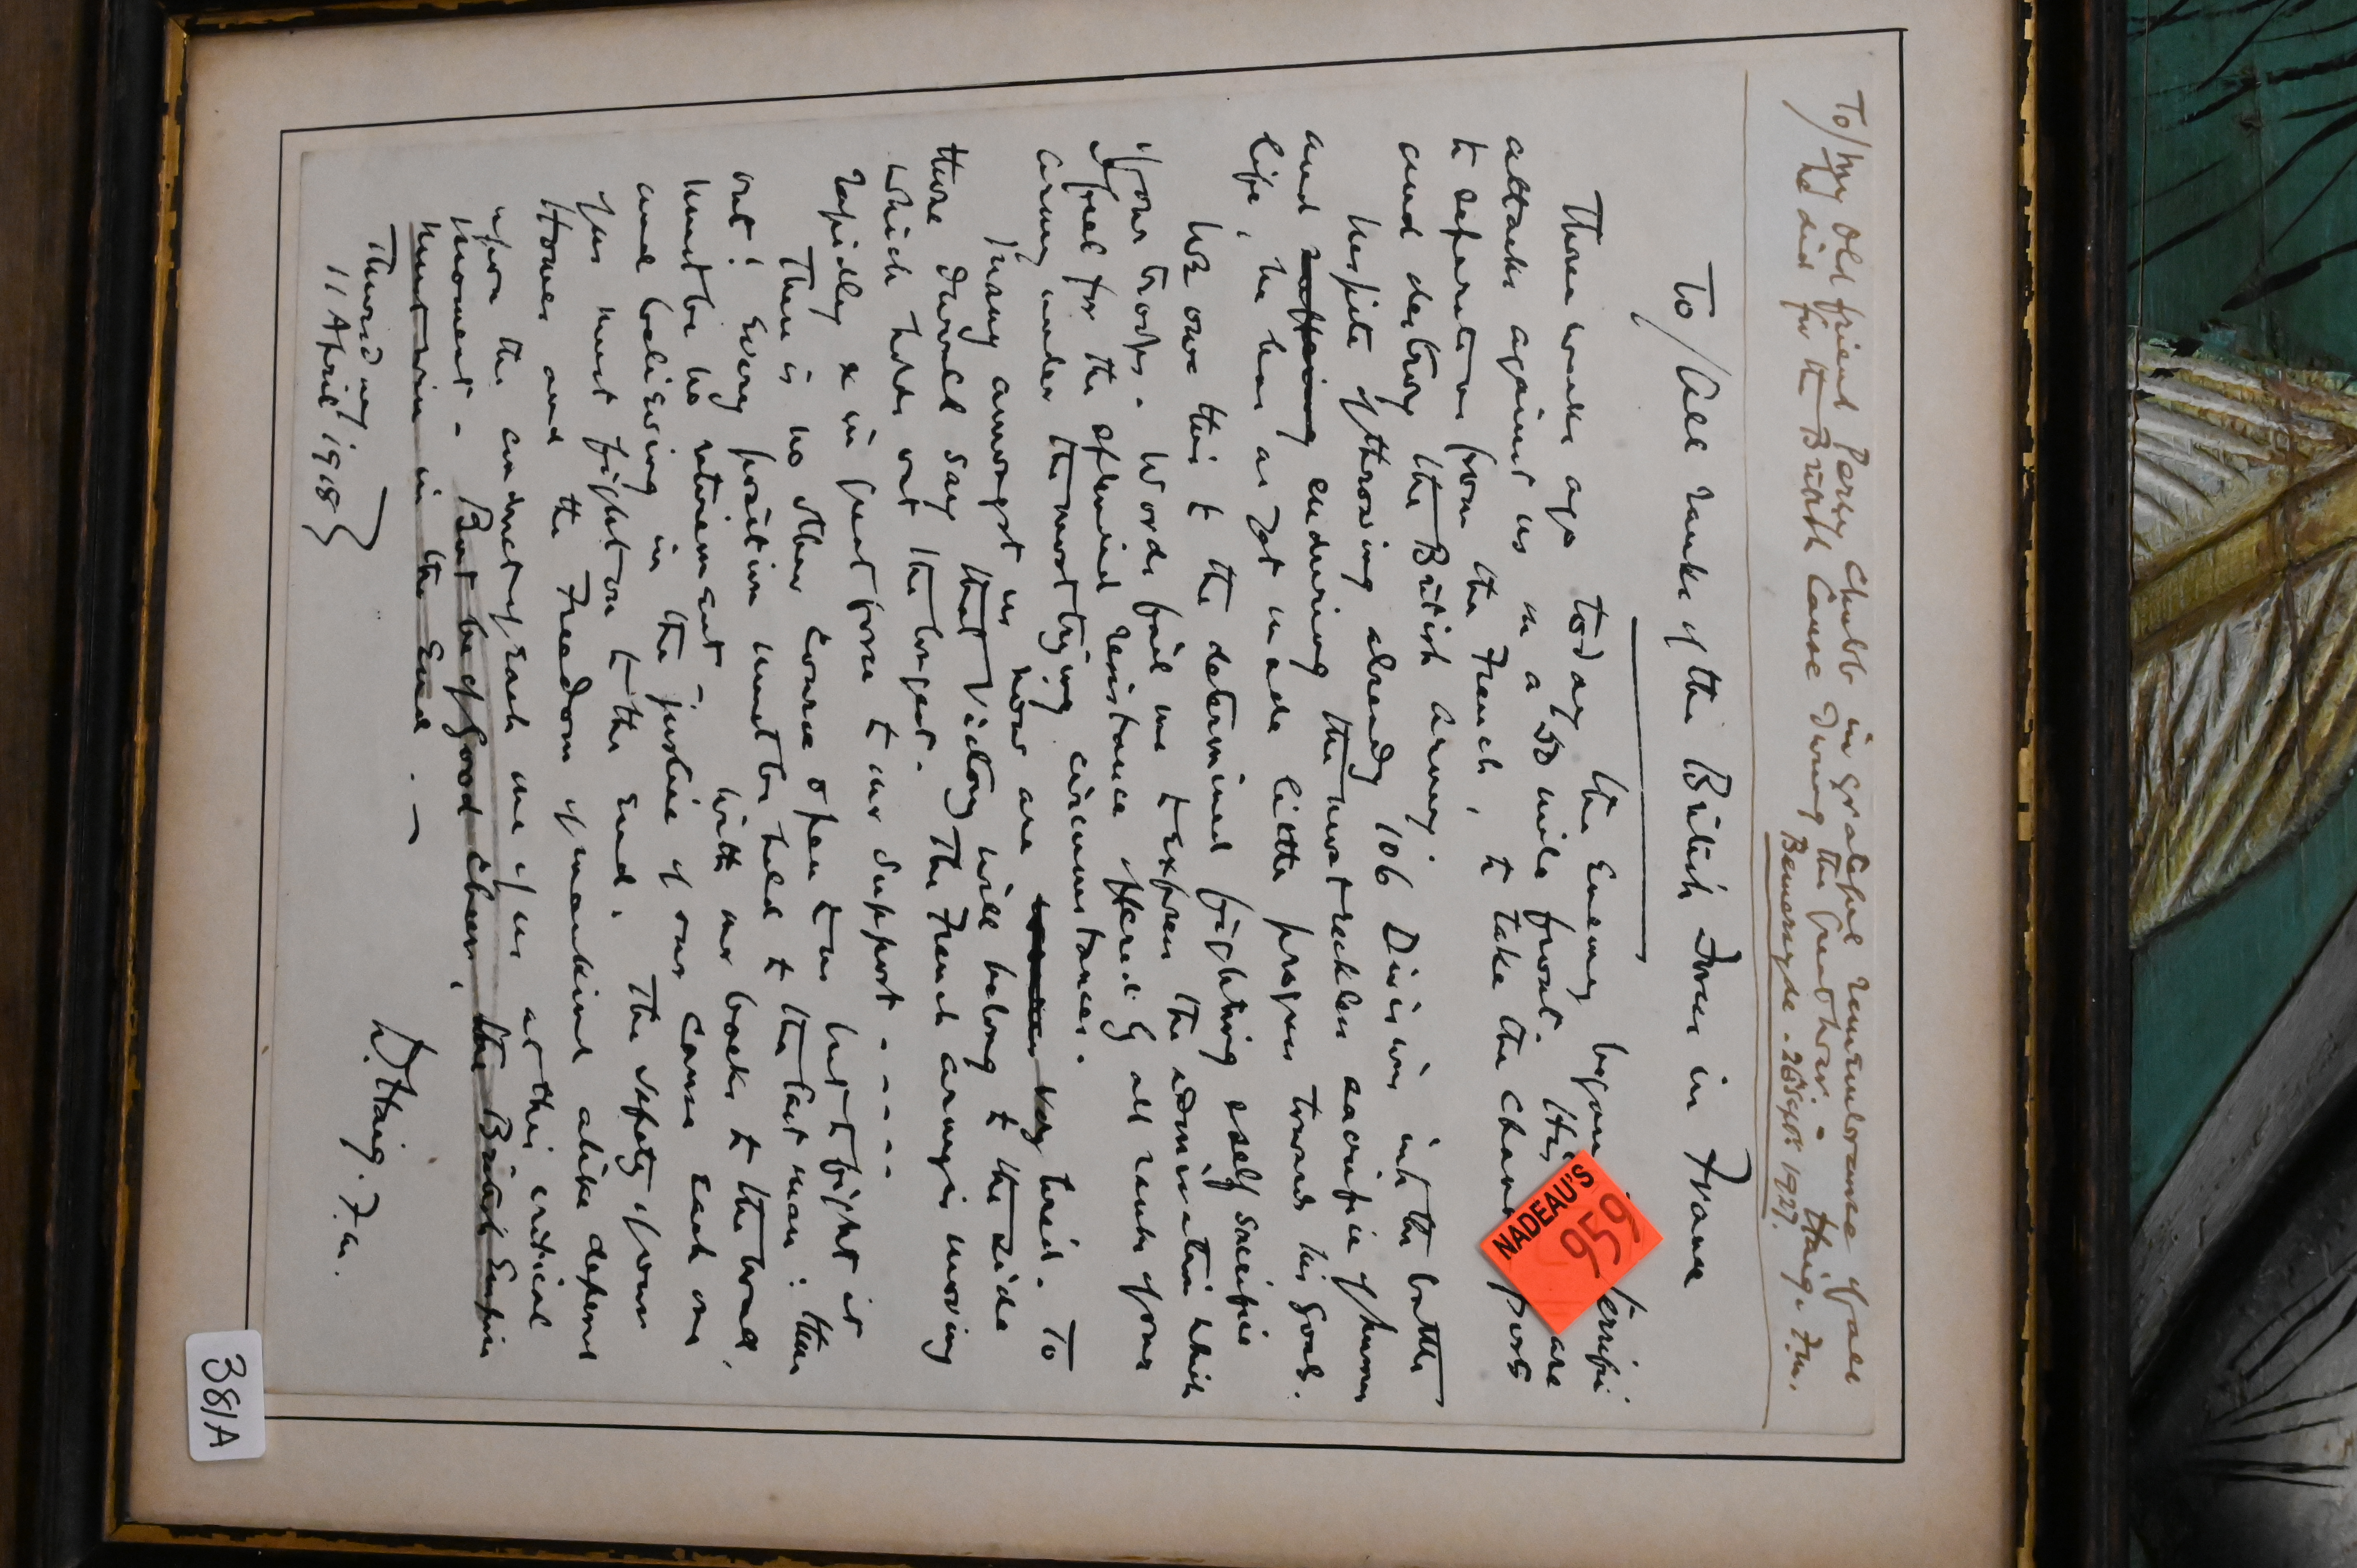 To/my old friend Percy Chubb in grateful remembrance of all
he did for the British Cause during the Great War. - Haig. F.M.
Bemersyde. 26 Sept 1927.
To/All ranks of the British Forces in France
Three weeks ago today the Enemy began terrific
attacks against us on a 50 mile front. His are
to separate us from the French, to take the Channel ports
and destroy the British Army.
Despite of throwing already 106 Divisions into the battle
and suffering enduring the most reckless sacrifice of human
life, he has as yet made little progress towards his goals.
We owe this to the determined fighting & self sacrifice
of our troops. Words fail me to express the admiration which
I feel for the splendid resistance offered by all ranks of our
Army under the most trying circumstances.
Many amongst us now are very tired. To
those I would say that Victory will belong to the side
which holds out the longest. The French Army is moving
rapidly & in great force to our support - - - - -
There is no other course open to us but to fight it
out! Every position must be held to the last man: there
must be no retirement. With our backs to the wall,
and believing in the justice of our cause each one
of us must fight on to the end. The safety of our
Homes and the Freedom of mankind alike depend
upon the conduct of each one of us at this critical
moment. But be of good cheer, the British Empire
must win in the end. -
Thursday
11 April 1918 }
D. Haig. F.M.
NADEAU'S
959
381A